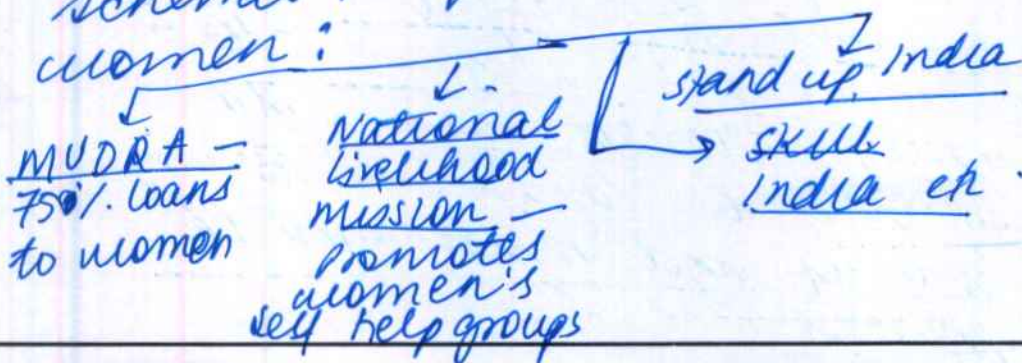 schemes
women :
MUDRA -
75% loans
to women
National
Livelihood
mission -
promotes
women's
self help groups
stand up India
skill
India etc